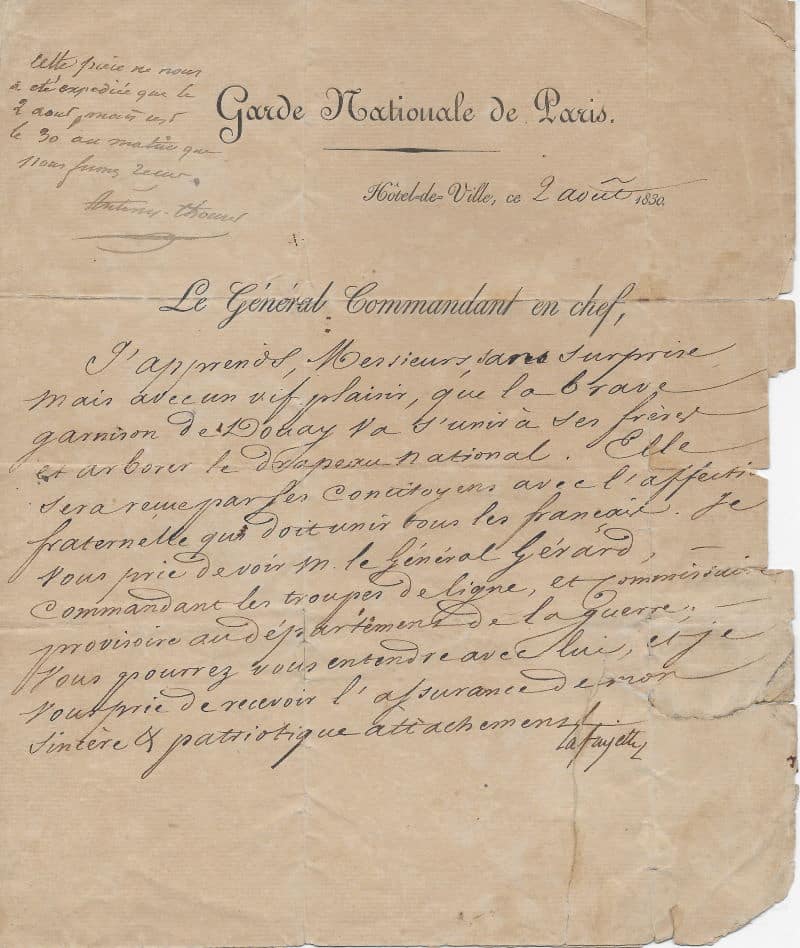 Cette pièce ne nous
a été expédiée que le
2 aout, mais c'est
le 30 au matin que
nous fumes
Antony-Thouret
Garde Nationale de Paris.
Hôtel-de-Ville, ce 2 août 1830.
Le Général Commandant en chef,
J'apprends, Messieurs sans surprise
mais avec un vif plaisir, que la brave
garnison de Douay va s'unir à ses frères
et arborer le drapeau national. Elle
sera reçue par ses concitoyens avec l'affecti
fraternelle qui doit unir tous les français. Je
vous prie de voir M. le Général Gérard, —
commandant les troupes de ligne, et Commissaire
provisoire au département de la guerre; —
vous pourrez vous entendre avec lui, et je
vous prie de recevoir l'assurance de mon
sincère & patriotique attachement
Lafayette